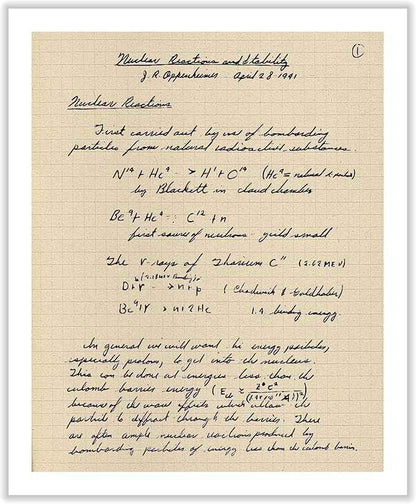 ①
Nuclear Reactions and Stability
J. R. Oppenheimer April 28 1941
Nuclear Reactions
First carried out by use of bombarding
particles from natural radioactive substances.
N¹⁴ + He⁴ -> H¹ + O¹⁷ (He⁴ = natural α particles)
by Blackett in cloud chamber
Be⁹ + He⁴ : C¹² + n
first source of neutrons - yield small
The γ-rays of Thorium C" (2.62 MEV)
D + γ -> n + p (Chadwick & Goldhaber)
Be⁹ + γ -> n + 2He 1.9 binding energy.
In general we will want hi energy particles,
especially protons, to get into the nucleus.
This can be done at energies less than the
culomb barrier energy
because of the wave effects which allow the
particle to diffract through the barrier. There
are often ample nuclear reactions produced by
bombarding particles of energy less than the culomb barrier.